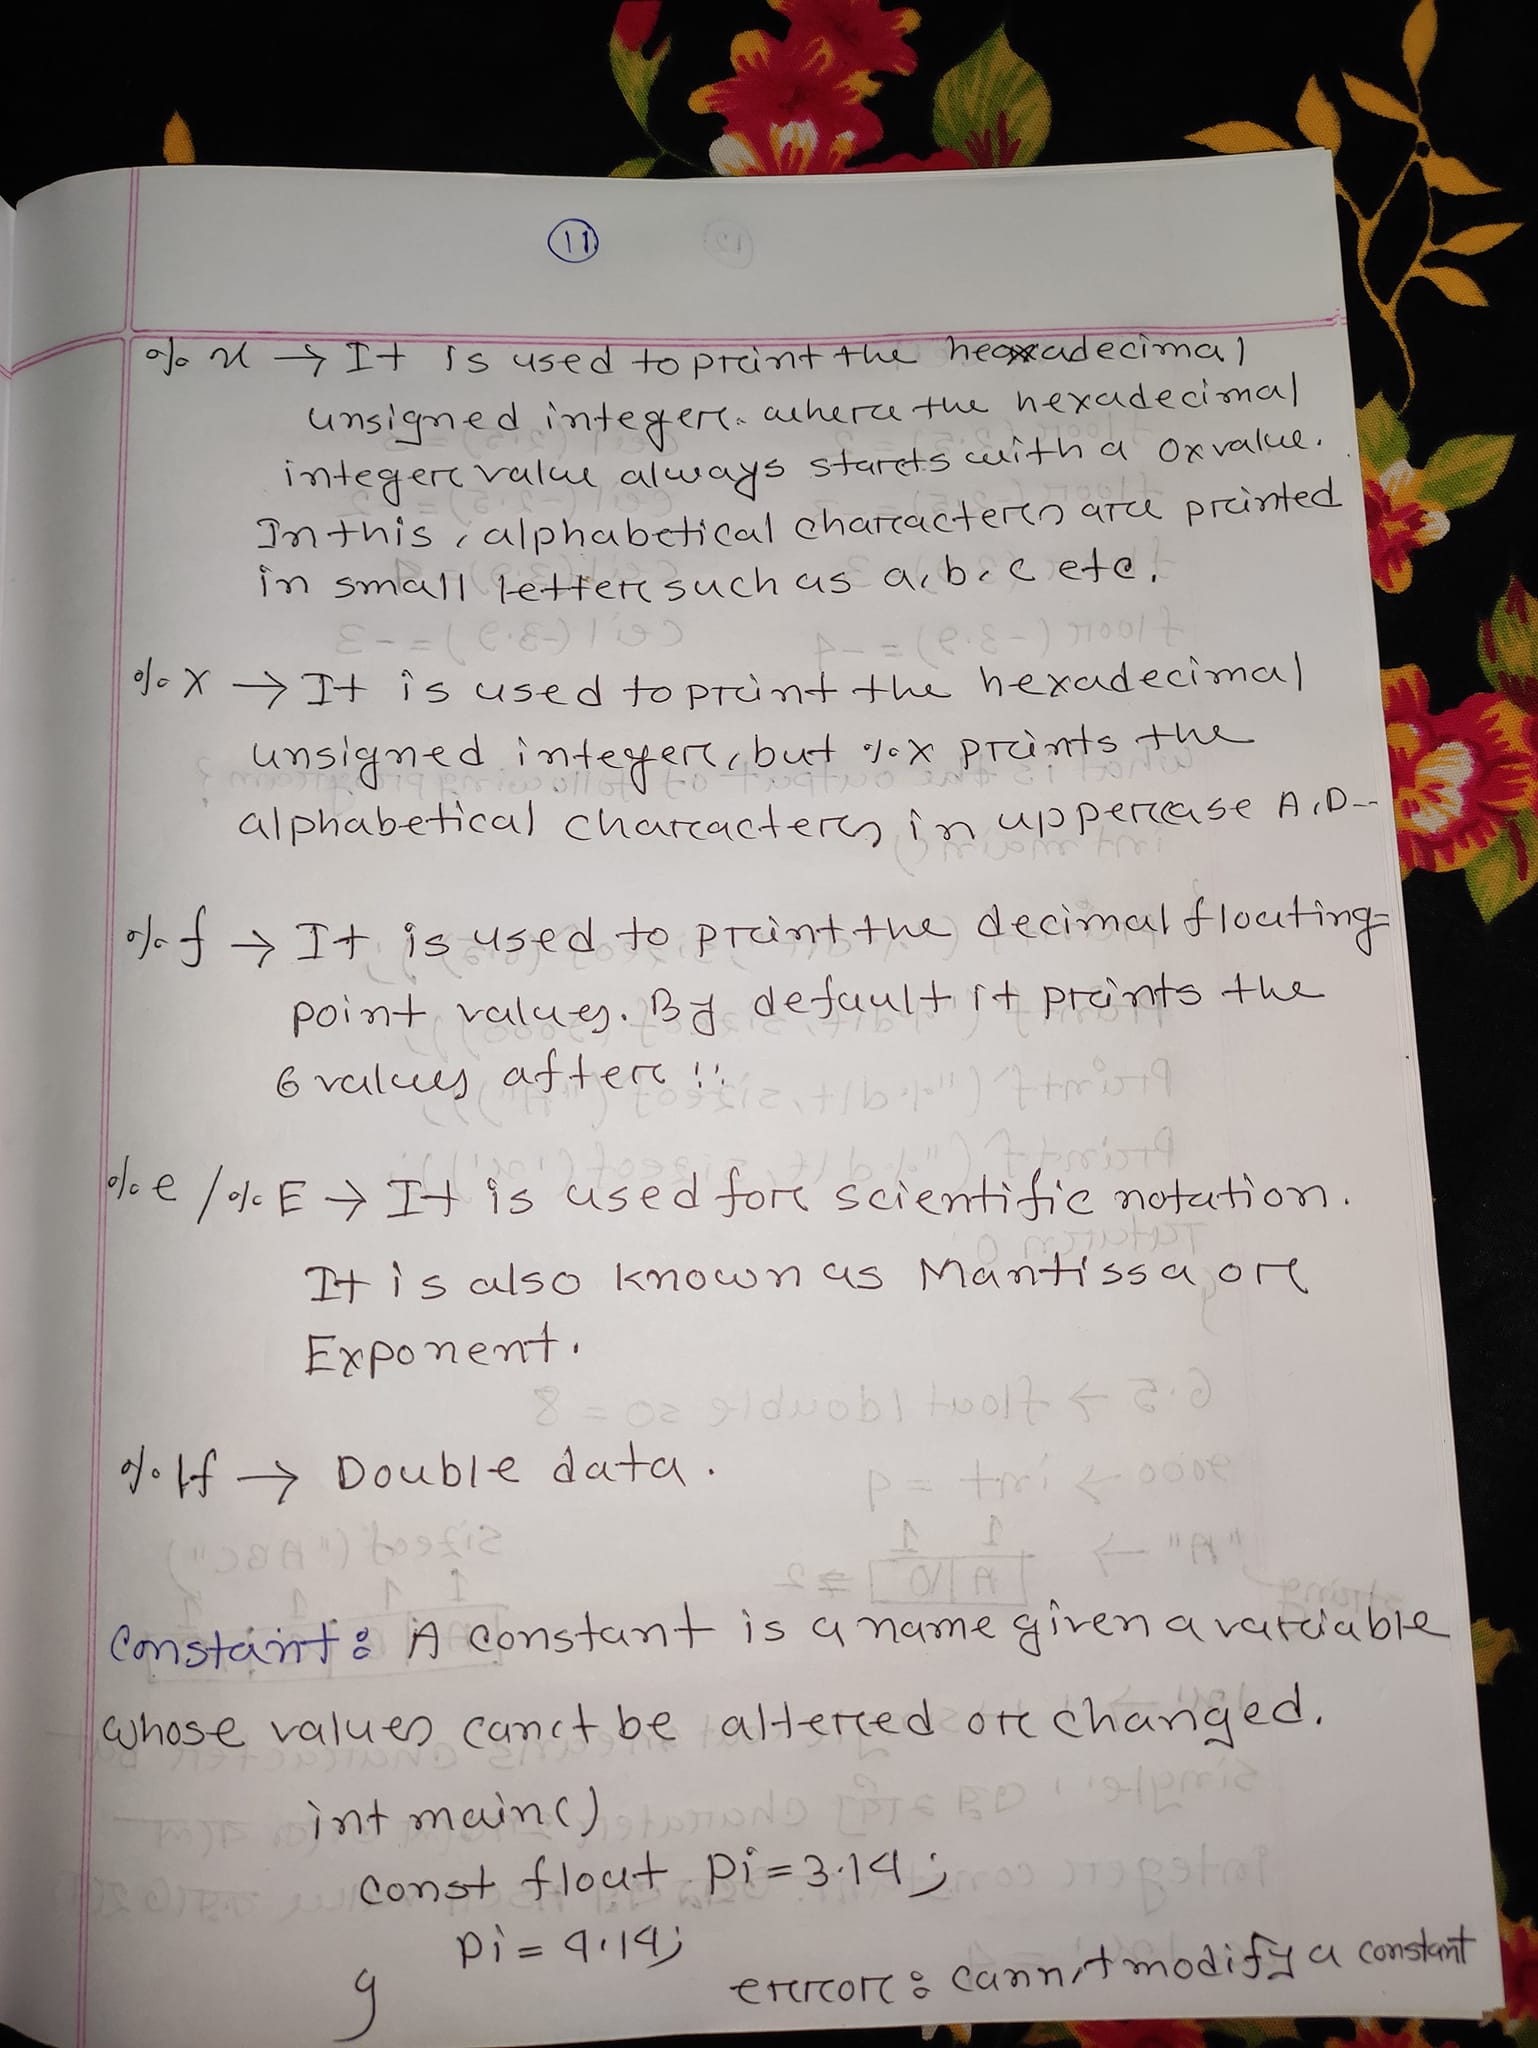 11
%x → It is used to print the hexadecimal
unsigned integer. where the hexadecimal
integer value always starts with a 0x value.
In this, alphabetical characters are printed
in small letter such as a, b, c etc.
%X → It is used to print the hexadecimal
unsigned integer, but %X prints the
alphabetical characters in uppercase A, D--
%f → It is used to print the decimal floating-
point values. By default it prints the
6 values after '.'
%e / %E → It is used for scientific notation.
It is also known as Mantissa or
Exponent.
%lf → Double data.
Constant: A constant is a name given a variable
whose values can't be altered or changed.
int main()
const float pi=3.14;
pi=4.14;
}
error: cann't modify a constant